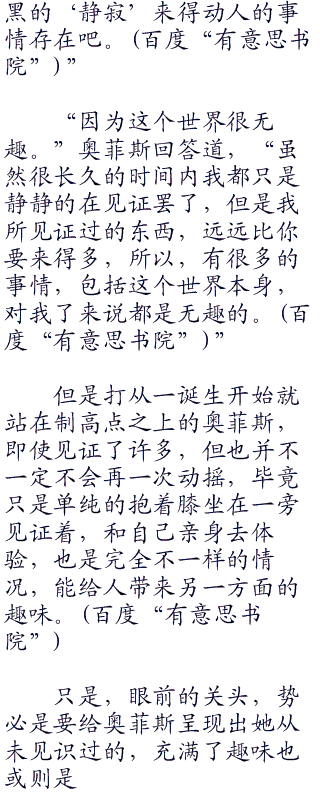 黑的‘静寂’来得动人的事
情存在吧。(百度“有意思书
院”)”
“因为这个世界很无
趣。”奥菲斯回答道，“虽
然很长久的时间内我都只是
静静的在见证罢了，但是我
所见证过的东西，远远比你
要来得多，所以，有很多的
事情，包括这个世界本身，
对我了来说都是无趣的。(百
度“有意思书院”)”
但是打从一诞生开始就
站在制高点之上的奥菲斯，
即使见证了许多，但也并不
一定不会再一次动摇，毕竟
只是单纯的抱着膝坐在一旁
见证着，和自己亲身去体
验，也是完全不一样的情
况，能给人带来另一方面的
趣味。(百度“有意思书
院”)
只是，眼前的关头，势
必是要给奥菲斯呈现出她从
未见识过的，充满了趣味也
或则是